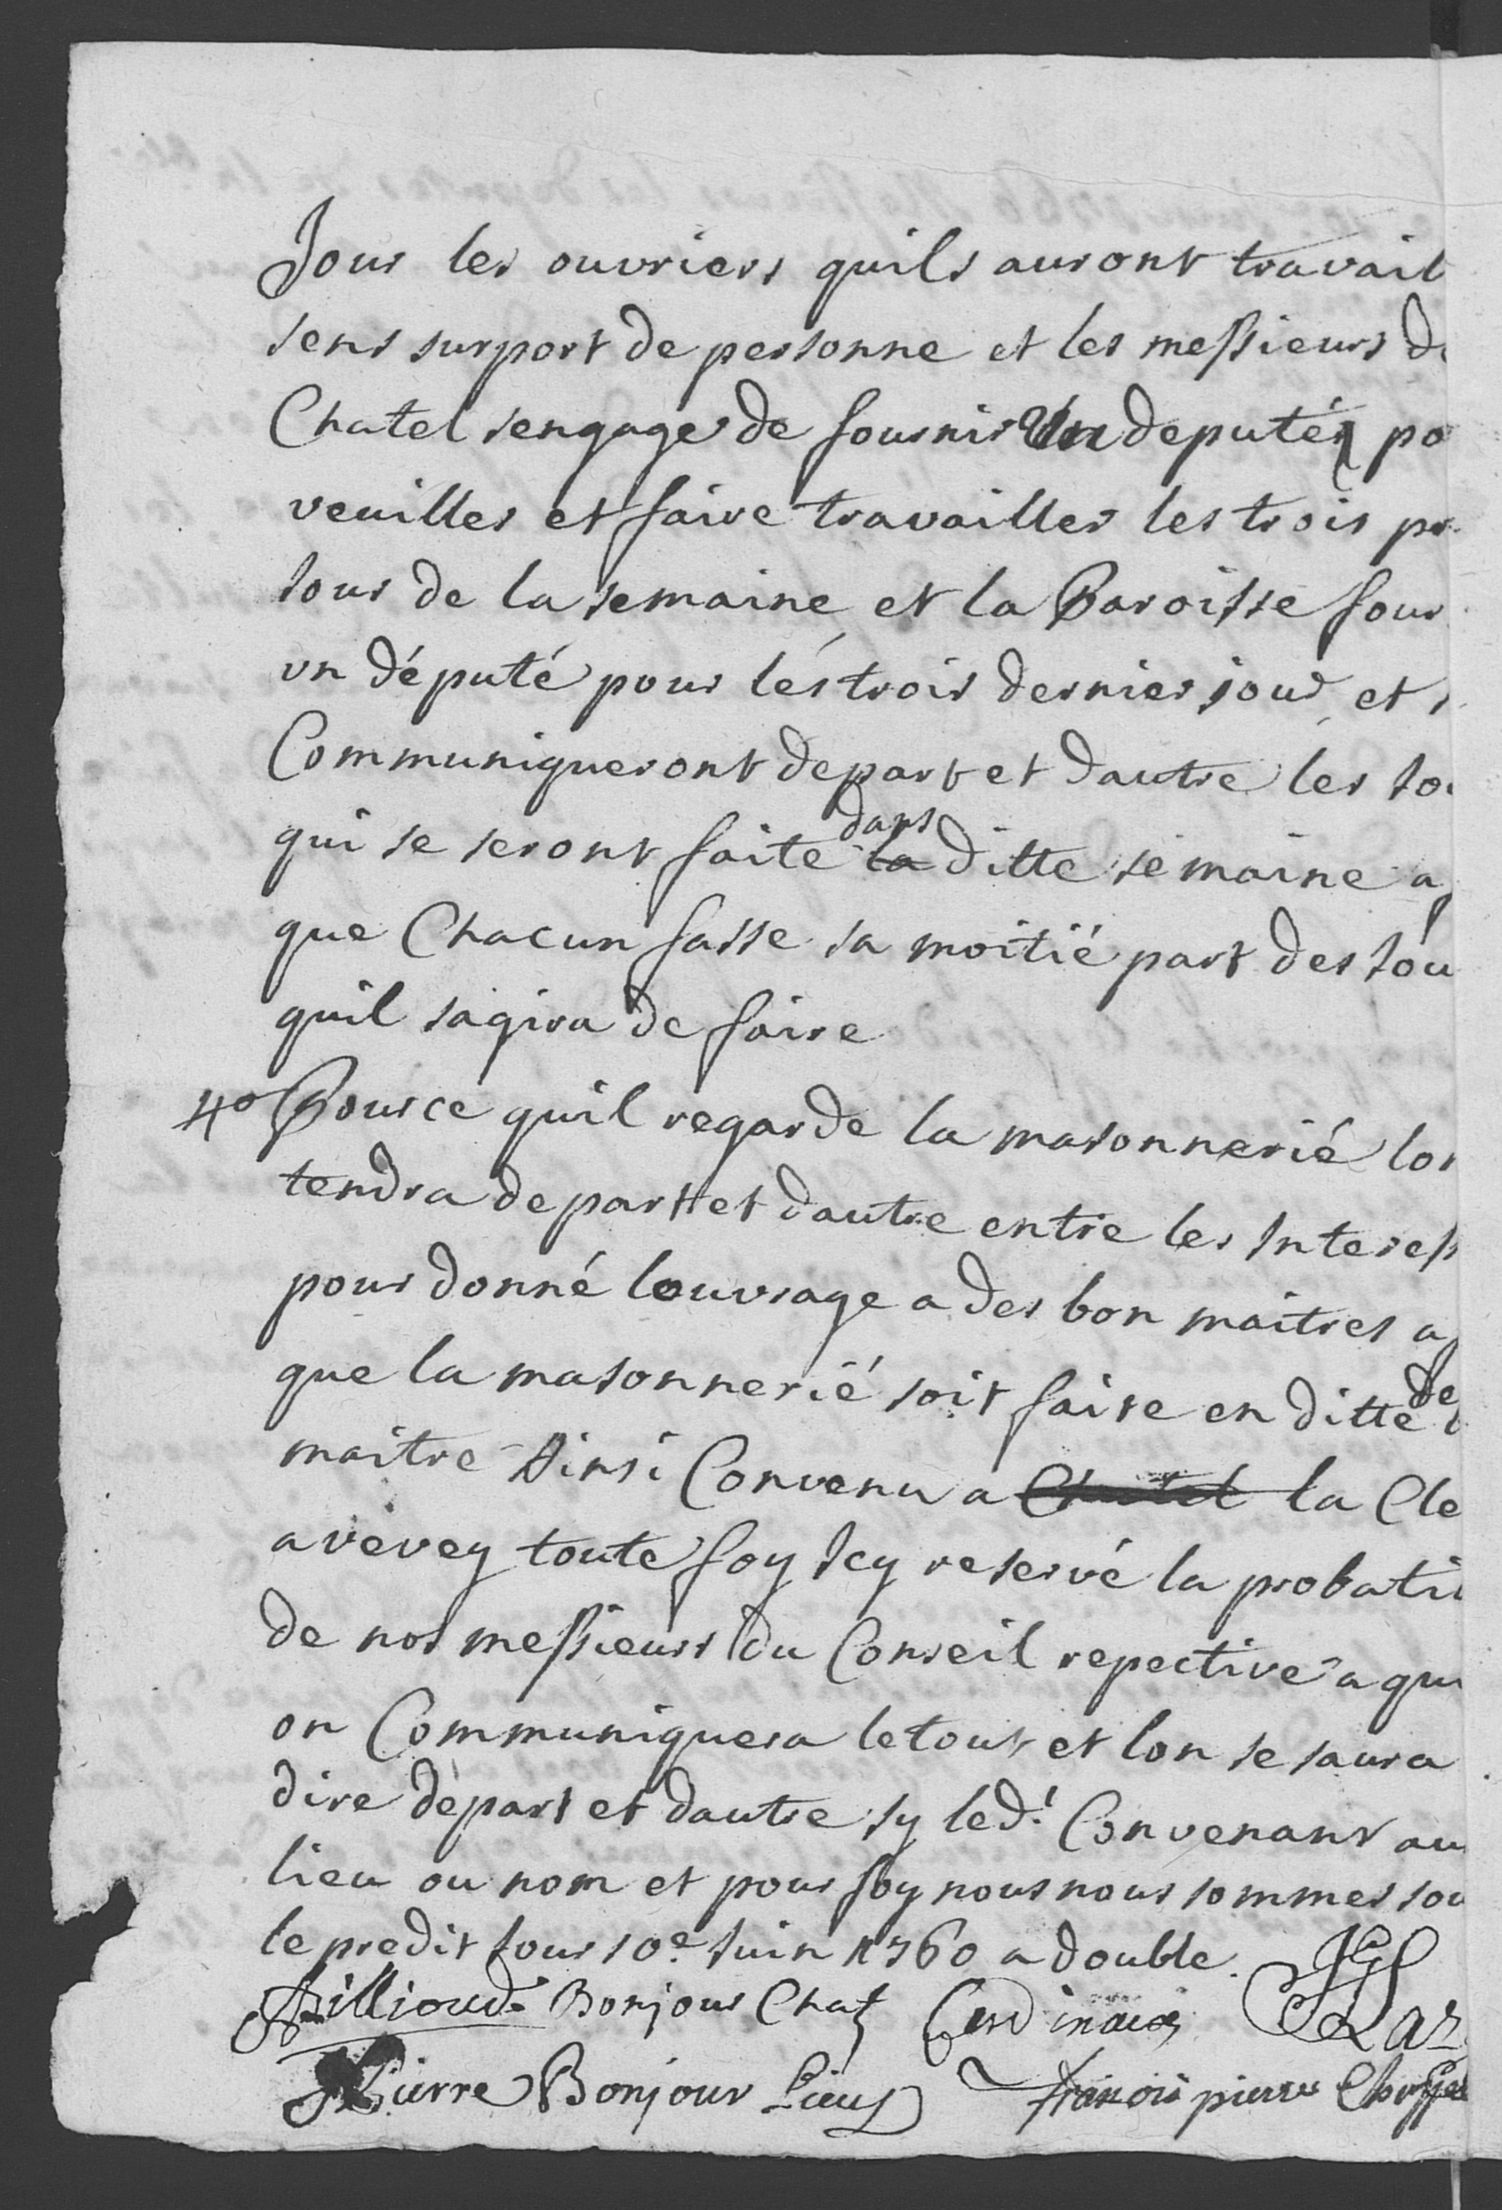 Jour les ouvriers quils auront travail
sens surport de personne et les messieurs d
Chatel sengage de fournir Un deputé po
veuiller et faire travailler les trois pr
Jour de la semaine et la Paroisse four
un député pour lés trois dernier jour et s
Communiqueront depart et dautre les to
qui se seront faite dans la ditte semaine a
que Chacun fasse sa moitié part des Jou
quil sagira de faire
4o Pource quil regarde la masonnerié lon
tendra de part et dautre entre les Interess
pour donné louvrage a des bon maitres a
que la masonnerié soit faite en ditte de
maitre Ainsi Convenu a Chatel la Cle
a vevey toute foy Icy reservé la probati
de nos messieurs du Conseil repective a qui
on Communiquera le tout et lon se saura
dire départ et dautre sy led.t Convenant au
lieu ou nom et pour foy nous nous sommes sou
le predit Jour 10e Juin 1760 a double.
Pillioud Bonjour Chat Cardinaux
Pierre Bonjour François pierre